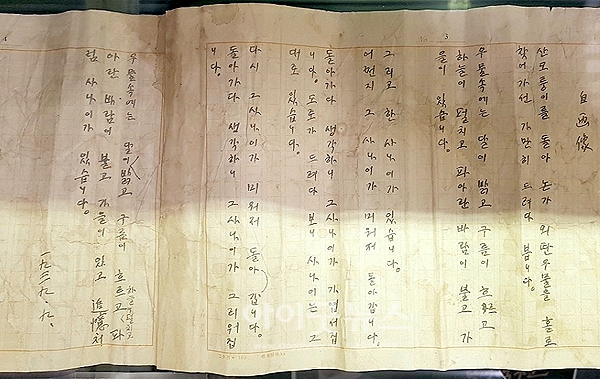 3
自画像
산모퉁이를 돌아 논가 외딴우물을 홀로
찾어가선 가만히 드려다 봅니다.
우물속에는 달이 밝고 구름이 흐르고
하늘이 펼치고 파아란 바람이 불고 가
을이 있습니다.
그리고 한 사나이가 있습니다.
어쩐지 그 사나이가 미워저 돌아갑니다.
돌아가다 생각하니 그사나이가 가엽서집
니다. 도로가 드려다 보니 사나이는 그
대로 있습니다.
다시 그사나이가 미워저 돌아 갑니다.
돌아가다 생각하니 그사나이가 그리워집
니다.
4
우물속에는 달이 밝고 구름이 흐르고 하늘이 펼치고 파
아란 바람이 불고 가을이 있고 追憶처
럼 사나이가 있습니다.
一九三九. 九.